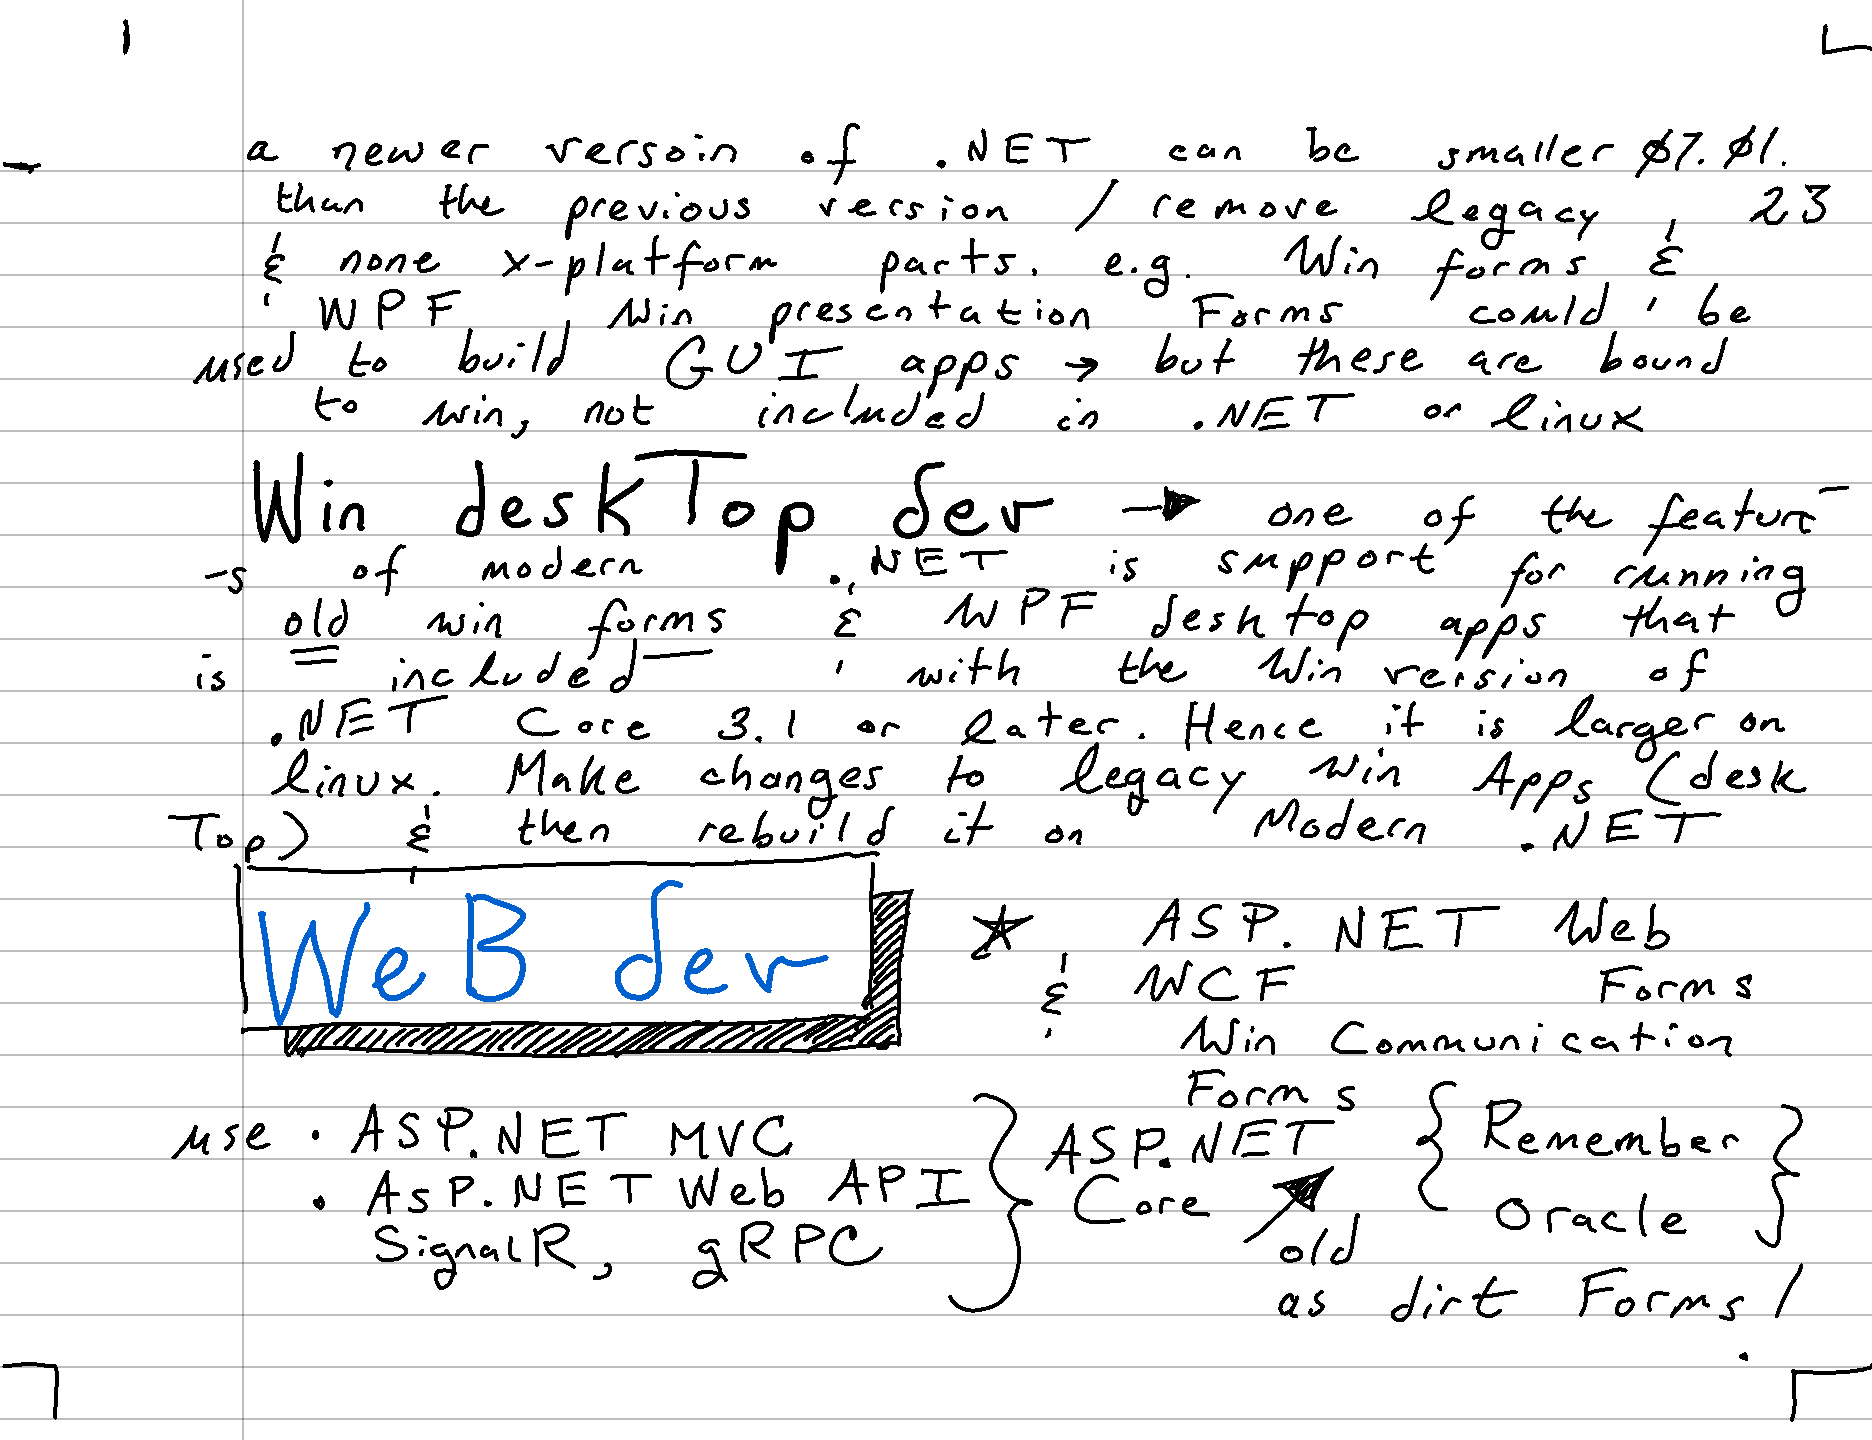 a newer versoin of .NET can be smaller 07.01.
than the previous version / remove legacy, 23
& none x-platform parts. e.g. Win forms &
WPF Win presentation Forms could be
used to build GUI apps → but these are bound
to win, not included in .NET or linux
Win deskTop dev → one of the featur
-s of modern .NET is support for running
old win forms & WPF desktop apps that
is included with the Win version of
.NET Core 3.1 or later. Hence it is larger on
linux. Make changes to legacy win Apps (desk
Top) & then rebuild it on Modern .NET
WeB dev
ASP. NET Web
& WCF Forms
Win Communication
Forms
use · ASP.NET MVC
· AsP.NET Web API
SignalR, gRPC
ASP.NET
Core
{ Remember
Oracle }
old
as dirt Forms!